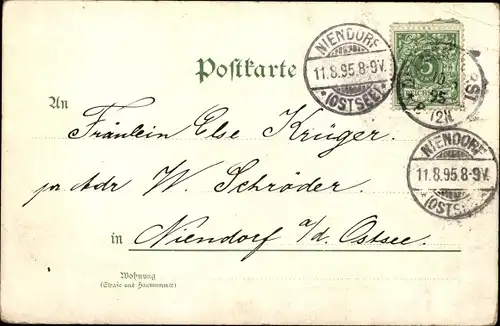 Postkarte
NIENDORF
11.8.95.8-9V.
(OSTSEE)
5
An
Fräulein Else Krüger.
pr Adr W. Schröder.
in Niendorf a/d. Ostsee.
NIENDORF
11.8.95.8-9V.
(OSTSEE)
Wohnung
(Straße und Hausnummer)